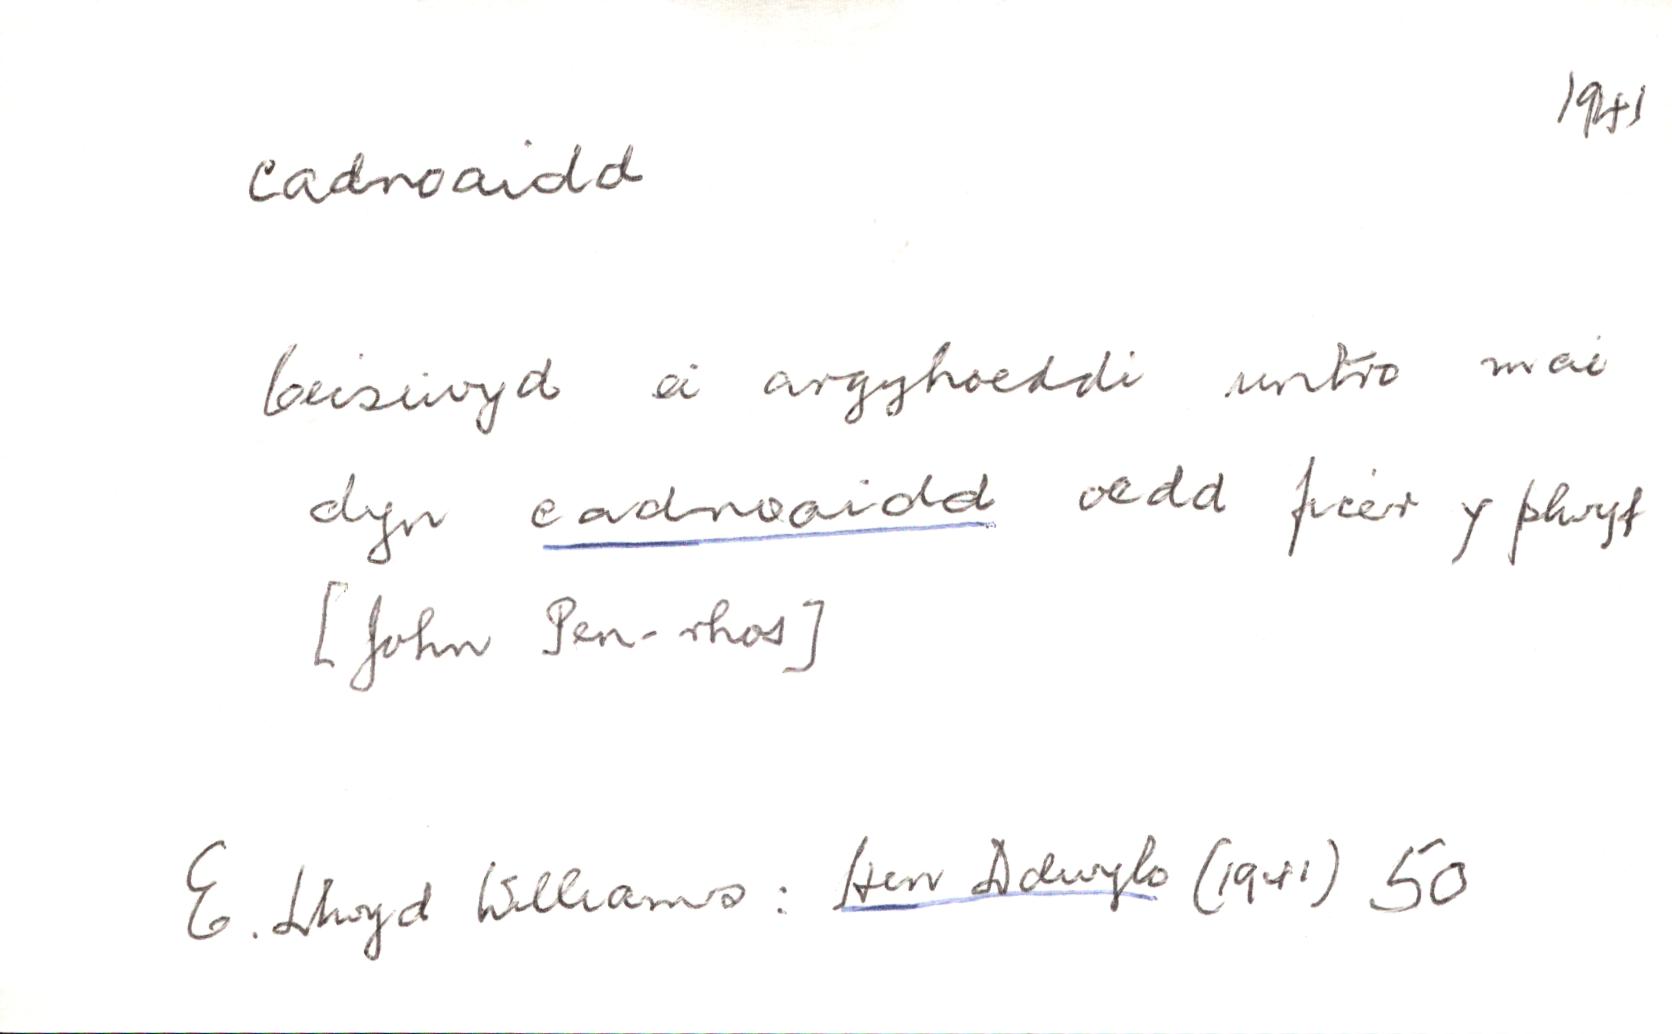 1941
cadnoaidd
ceisiwyd ei argyhoeddi untro mai
dyn cadnoaidd oedd ficer y plwyf
[John Pen-rhos]
E. Llwyd Williams: Hen Ddwylo (1941) 50